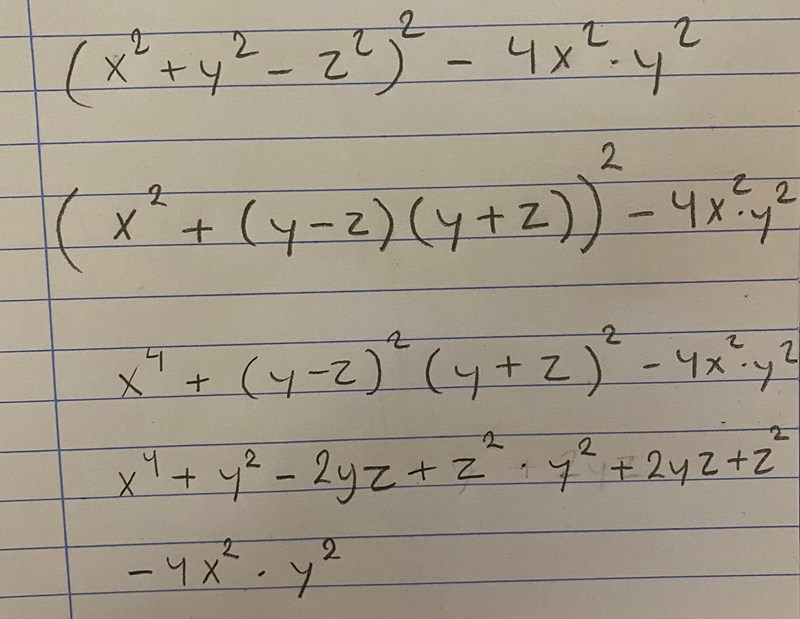 (x² + y² - z²)² - 4x² · y²
(x² + (y-z)(y+z))² - 4x² · y²
x⁴ + (y-z)² (y+z)² - 4x² · y²
x⁴ + y² - 2yz + z² · y² + 2yz + z²
- 4x² · y²